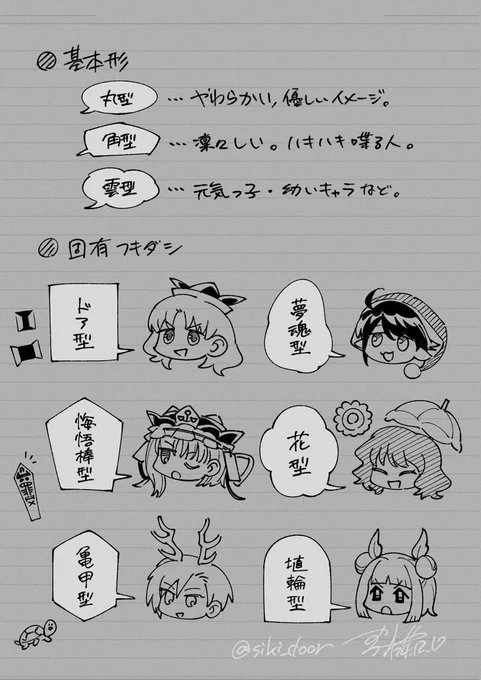 基本形
丸型 … やわらかい, 優しいイメージ。
角型 … 凛々しい。ハキハキ喋る人。
雲型 … 元気っ子・幼いキャラなど。
固有フキダシ
ドア型
夢魂型
悔悟棒型
花型
亀甲型
埴輪型
@siki_door